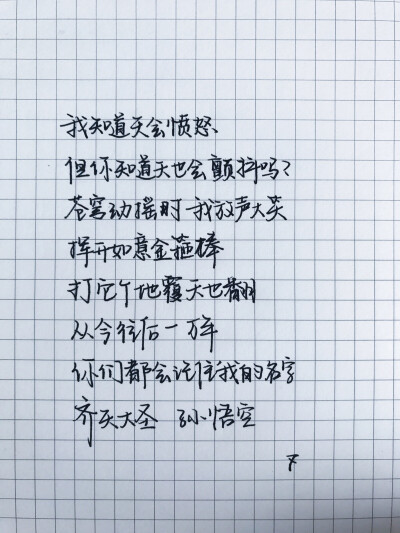 我知道天会愤怒、
但你知道天也会颤抖吗?
苍穹动摇时 我放声大笑
挥开如意金箍棒
打它个地覆天也翻
从今往后一万年
你们都会记住我的名字
齐天大圣 孙悟空